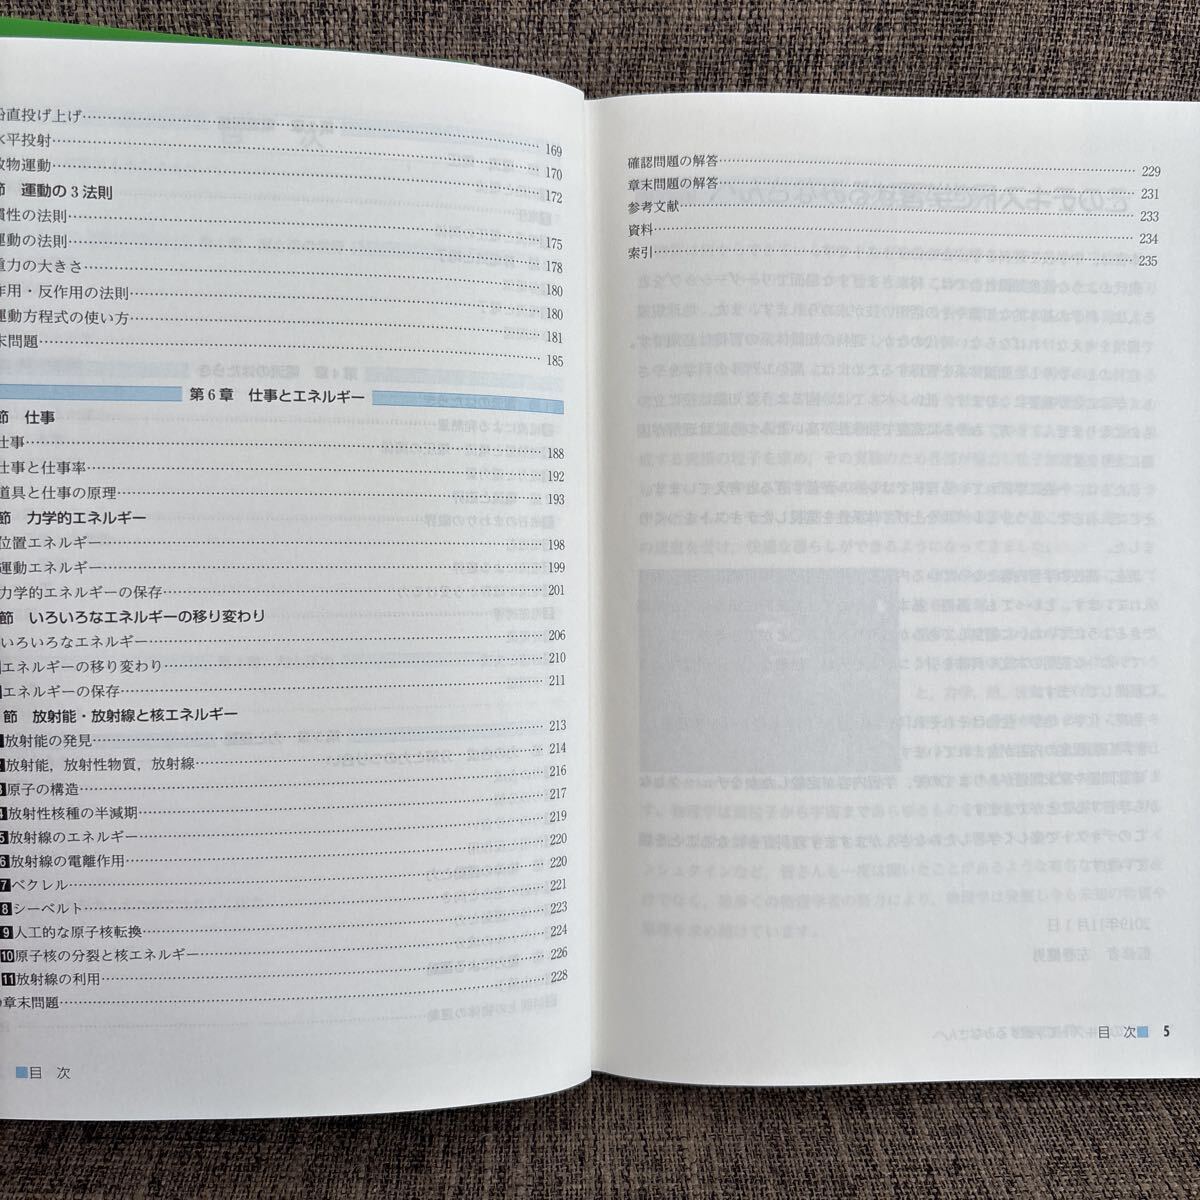 直投げ上げ 169
水平投射 170
放物運動 172
節 運動の3法則
慣性の法則 175
運動の法則 178
重力の大きさ 180
作用・反作用の法則 180
運動方程式の使い方 181
末問題 185
第6章 仕事とエネルギー
節 仕事
仕事 188
仕事と仕事率 192
道具と仕事の原理 193
節 力学的エネルギー
位置エネルギー 198
運動エネルギー 199
力学的エネルギーの保存 201
節 いろいろなエネルギーの移り変わり
いろいろなエネルギー 206
エネルギーの移り変わり 210
エネルギーの保存 211
節 放射能・放射線と核エネルギー
放射能の発見 213
放射能,放射性物質,放射線 214
原子の構造 216
4 放射性核種の半減期 217
5 放射線のエネルギー 219
6 放射線の電離作用 220
7 ベクレル 220
8 シーベルト 221
9 人工的な原子核転換 223
10 原子核の分裂と核エネルギー 224
11 放射線の利用 226
章末問題 228
目 次
確認問題の解答 229
章末問題の解答 231
参考文献 233
資料 234
索引 235
目 次 5